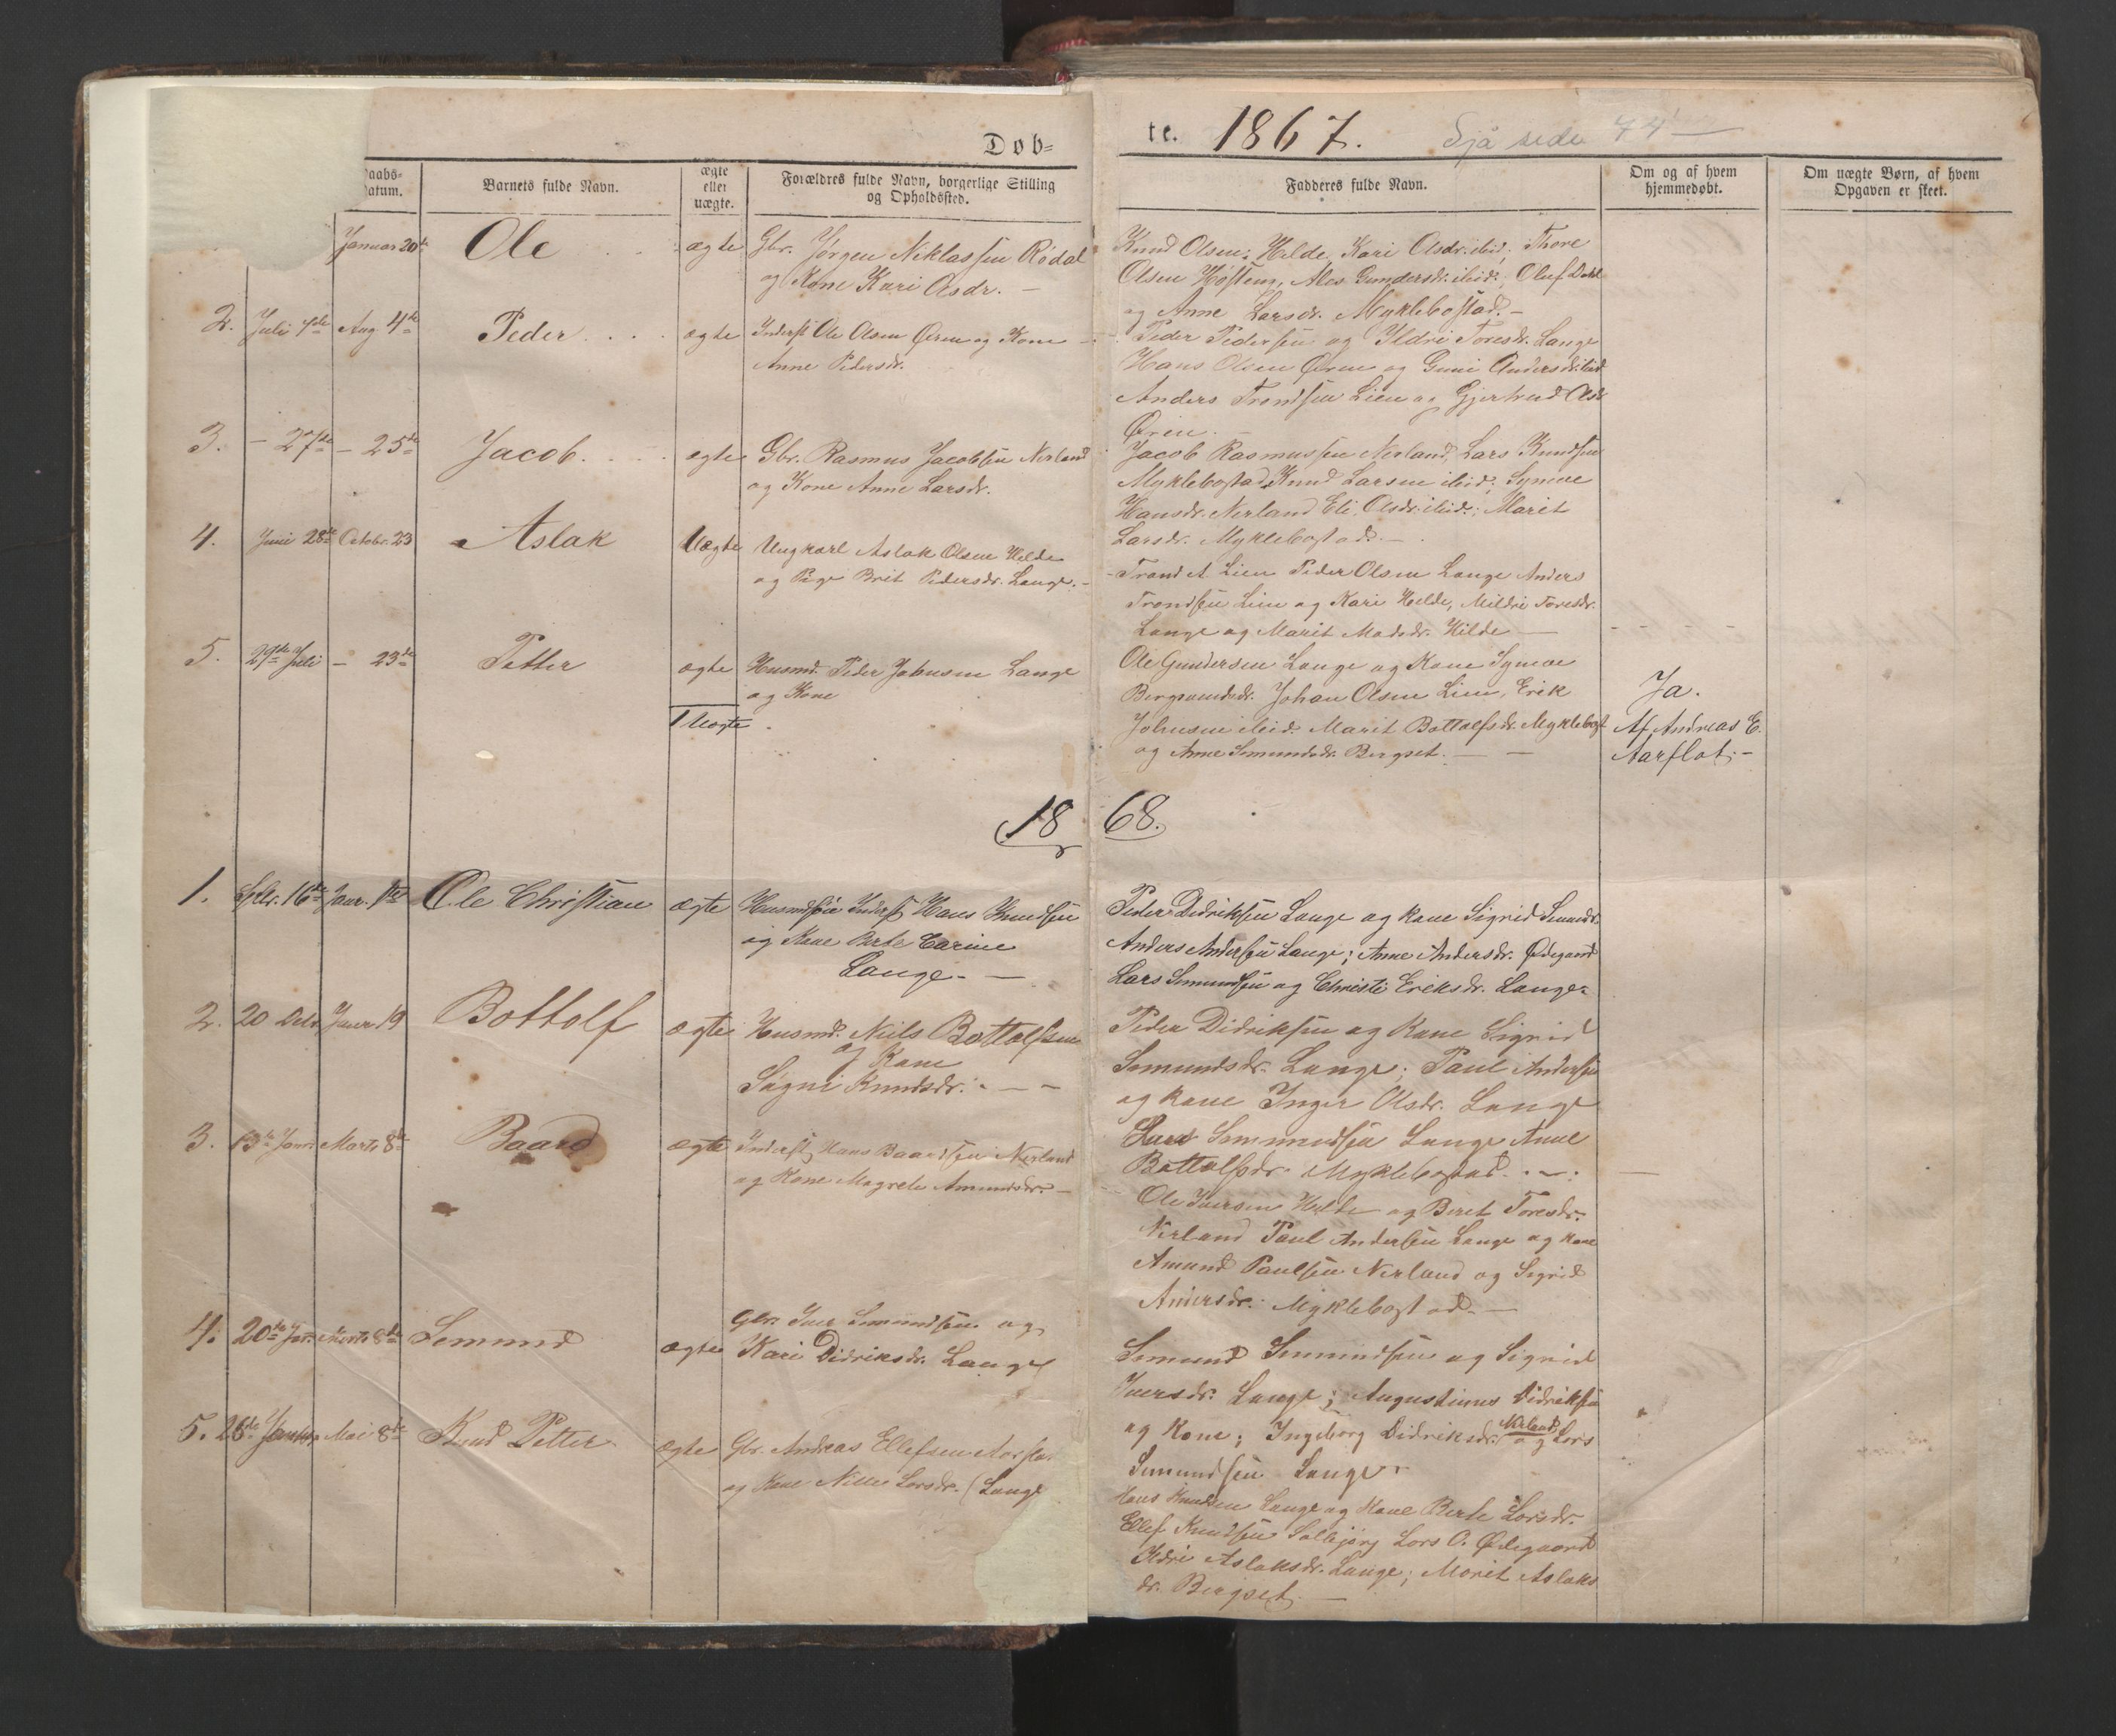 Döb=
te. 1867. Sjå side 44
aabs=
atum.
Barnets fulde Navn.
ægte
eller
uægte.
Forældres fulde Navn, borgerlige Stilling
og Opholdssted.
Fadderes fulde Navn.
Om og af hvem
hjemmedøbt.
Om uægte Børn, af hvem
Opgaven er skeet.
Januar 20de Ole ægte Gbr. Jørgen Niklassen Rødal
og Kone Kari Olsdr. –
Knud Olsen Hilde, Kari Olsdr. ibid; Thore
Olsen Høsteng, Gundersdr. ibid; Oluf Dahl
og Anne Larsdr. Myklebostad. –
2. Juli 7de Aug 4de Peder ægte Inderst Ole Olsen Øren og Kone
Anne Pedersdr.
Peder Pedersen og Ildri Toresdr. Lange
Hans Olsen Øren og Guni Andersdr. ibid
Anders Trondsen Lien og Gjertrud Olsdr
Øren. –
3. – 27de – 25de Jacob. ægte Gbr. Rasmus Jacobsen Nerland
og Kone Anne Larsdr.
Jacob Rasmussen Nerland, Lars Knudsen
Myklebostad, Knud Larsen ibid; Synnve
Hansdr. Nerland Eli Olsdr. ibid.; Marit
Larsdr. Myklebostad. –
4. Juni 28de Octobr. 23 Aslak Uægte Ungkarl Aslak Olsen Hilde
og Pige Brit Pedersdr. Lange. –
Trond A. Lien Peder Olsen Lange Anders
Trondsen Lien og Kari Hilde, Mildri Toresdr.
Lange og Marit Madsdr. Hilde –
5. 29de Juli – 23de Petter ægte Husmd. Peder Johnsen Lange
og Kone
1 Uægte.
Ole Gundersen Lange og Kone Synnve
Johan Olsen Lien, Erik
Johnsen ibid. Marit Bottolfsdr. Myklebost
og Anne Semundsdr. Bergset. –
Ja.
Af Andreas E.
Aarflot. –
18 68.
1. 16de Janr. 1ste Ole Christian ægte Inderst Hans Knudsen
og Kone Berte Carine
Lange. –
Peder Didriksen Lange og Kone Sigrid Semundsdr.
Anders Andersen Lange; Anne Andersdr. Ødegaard
Lars Semundsen og Christi Eriksdr. Lange.
2. 20 Decbr Janr 19 Bottolf ægte Husmd. Niels Bottolfsen
og Kone
Signi Knudsdr. – –
Peder Didriksen og Kone Sigrid
Semundsdr. Lange; Paul Andersen
og Kone Inger Olsdr. Lange
Lars Semundsen Lange Anne
Bottolfsdr. Myklebostad. –
3. 13de Janr. Marts 8de Baard ægte Inderst Hans Baardsen Nerland
og Kone Magrete Amundsdr. –
Ole Iversen Hilde og Beret Toresdr.
Nerland Paul Andersen Lange og Kone
Amund Paulsen Nerland og Sigrid
Andersdr. Myklebostad. –
4. 20de Jan. Marts 8de Semund ægte Gbr. Iver Semundsen og
Kari Didriksdr. Lange
Semund Semundsen og Sigrid
Iversdr. Lange; Augustinus Didriksen
og Kone; Ingeborg Didriksdr. Nerland og Lars
Semundsen Lange
5. 28de Mai 8de Knud Petter ægte Gbr. Andreas Ellefsen Aarflot
og Kone Nille Larsdr. (Lange
Hans Knudsen Lange og Kone Berte Larsdr.
Ellef Knudsen Solbjørg Lars O. Ødegaard
Ildri Aslaksdr. Lange; Marit Aslaks
dr. Bergset. –